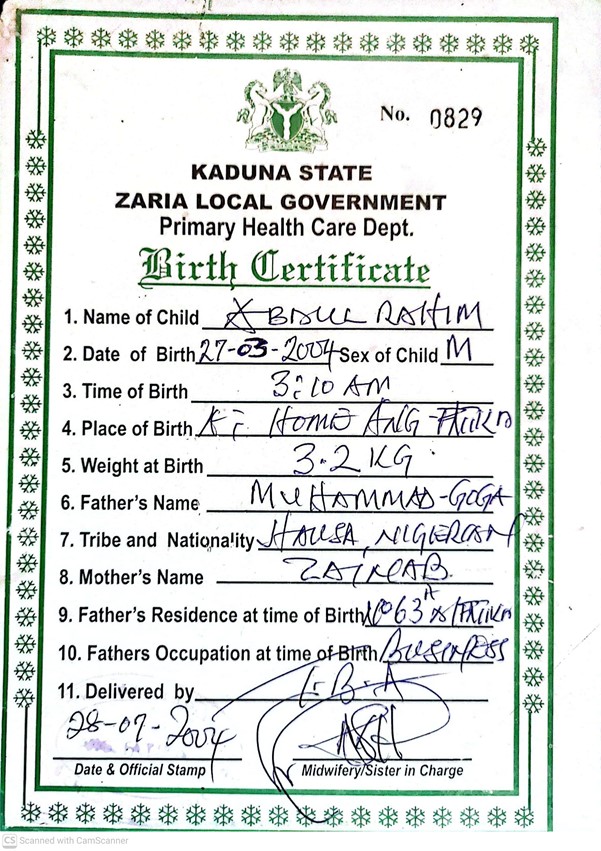 No. 0829
KADUNA STATE
ZARIA LOCAL GOVERNMENT
Primary Health Care Dept.
Birth Certificate
1. Name of Child ABDULRAHIM
2. Date of Birth 27-03-2004 Sex of Child M
3. Time of Birth 3:10 AM
4. Place of Birth HOME ANG
5. Weight at Birth 3.2 KG
6. Father's Name MUHAMMAD-GOGA
7. Tribe and Nationality HAUSA, NIGERIAN
8. Mother's Name ZAINAB.
9. Father's Residence at time of Birth
10. Fathers Occupation at time of Birth BUSINESS
11. Delivered by
2004
Date & Official Stamp Midwifery/Sister in Charge
CS Scanned with CamScanner